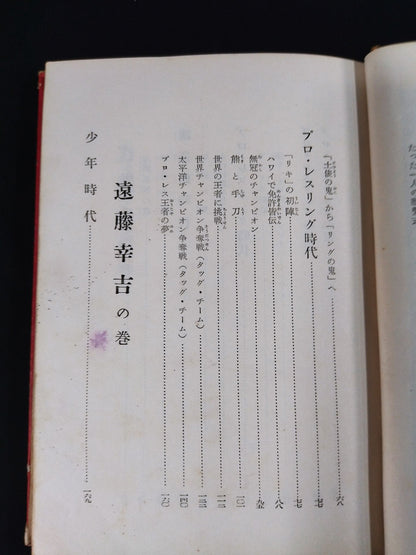 「土俵の鬼」から「リングの鬼」へ……六八
プロ・レスリング時代……七七
「リキ」の初陣……七七
ハワイで免許皆伝……八八
無冠のチャンピオン……九五
熊と手刀……一〇二
世界の王者に挑戦……一一三
世界チャンピオン争奪戦（タッグ・チーム）……一三三
太平洋チャンピオン争奪戦（タッグ・チーム）……一四〇
プロ・レス王者の夢……一六〇
遠藤幸吉の巻
少年時代……一六九